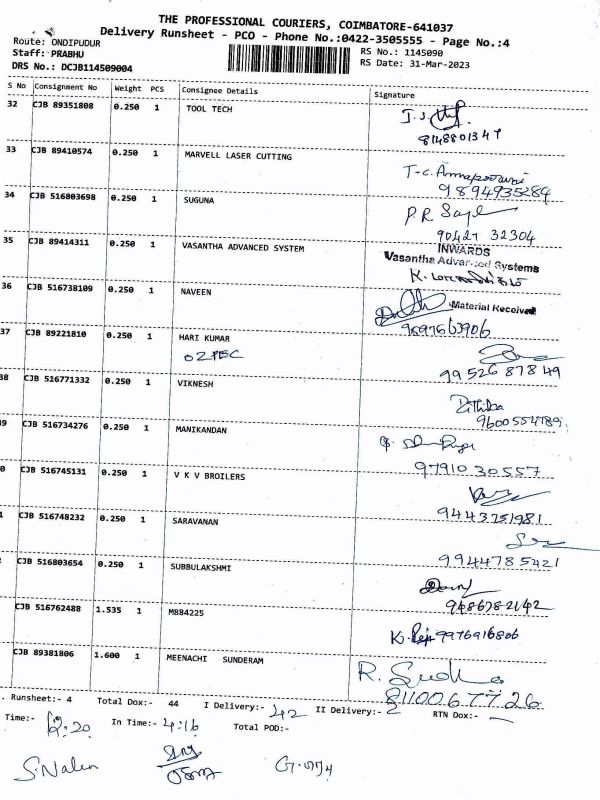 THE PROFESSIONAL COURIERS, COIMBATORE-641037
Delivery Runsheet - PCO - Phone No.:0422-3505555 - Page No.:4
Route: ONDIPUDUR
Staff: PRABHU
DRS No.: DCJB114509004
RS No.: 1145090
RS Date: 31-Mar-2023
S No Consignment No Weight PCS Consignee Details Signature
32 CJB 89351808 0.250 1 TOOL TECH
8148801347
33 CJB 89410574 0.250 1 MARVELL LASER CUTTING
9894935284
34 CJB 516803698 0.250 1 SUGUNA
90427 32304
35 CJB 89414311 0.250 1 VASANTHA ADVANCED SYSTEM
INWARDS
Vasantha Advanced Systems
36 CJB 516738109 0.250 1 NAVEEN
Material Received
37 CJB 89221810 0.250 1 HARI KUMAR
99526 87849
38 CJB 516771332 0.250 1 VIKNESH
9600554789
9 CJB 516734276 0.250 1 MANIKANDAN
97910 30557
0 CJB 516745131 0.250 1 V K V BROILERS
9443751981
1 CJB 516748232 0.250 1 SARAVANAN
9944785421
CJB 516803654 0.250 1 SUBBULAKSHMI
9486782142
CJB 516762488 1.535 1 M884225
9976916806
CJB 89381806 1.600 1 MEENACHI SUNDERAM
R. Sudha
8110067726
. Runsheet:- 4 Total Dox:- 44 I Delivery:- 42 II Delivery:- 2 RTN Dox:- —
Time:- 12:20 In Time:- 4:16 Total POD:-
S. Nalen